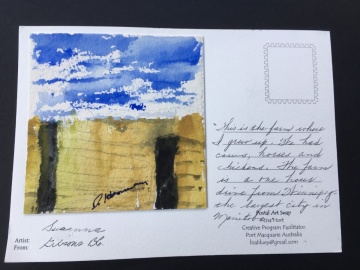 "This is the farm where
I grew up. We had
cows, horses and
chickens. The farm
is a one hour
drive from Winnipeg
the largest city in
Manitoba
Postal Art Swap
Creative Program Facilitator
Port Macquarie Australia
Artist: Suzanna
From: Gibsons BC